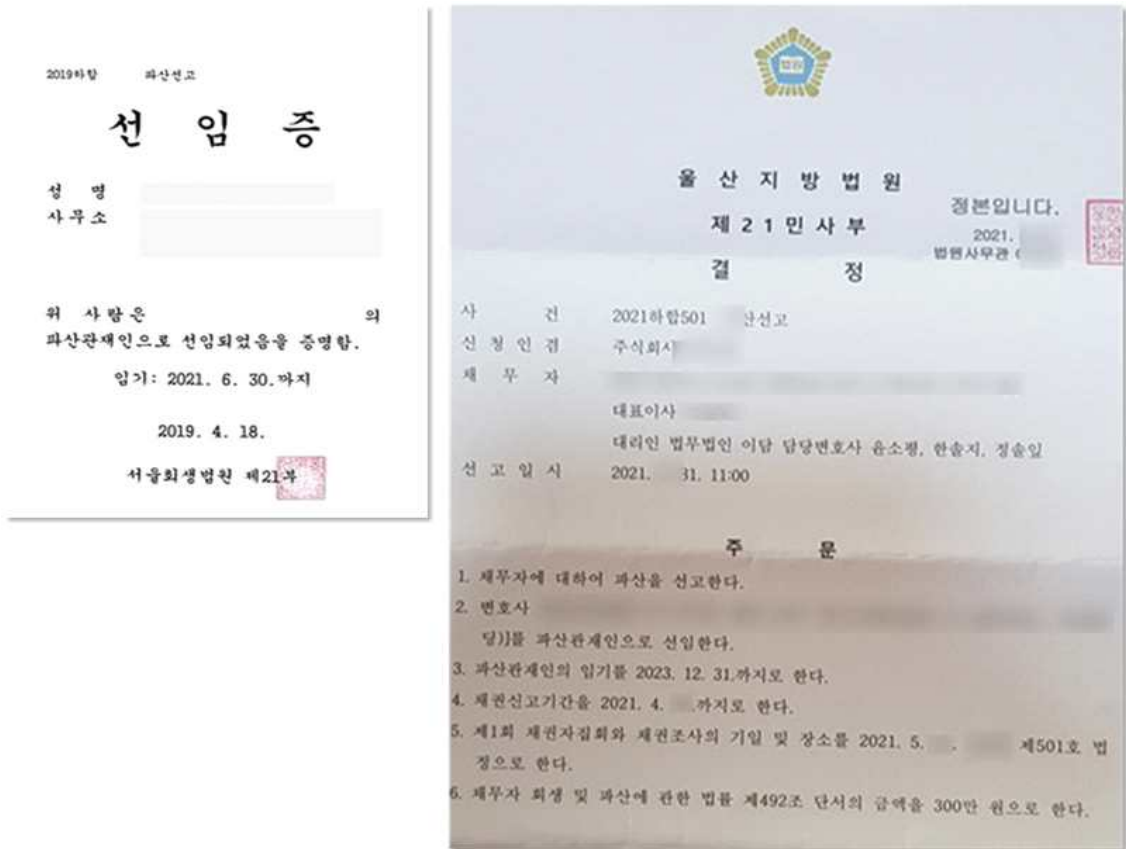 2019하합 파산선고
선 임 증
성 명
사무소
위 사람은 의
파산관재인으로 선임되었음을 증명함.
임기: 2021. 6. 30.까지
2019. 4. 18.
서울회생법원 제21부
법원
울 산 지 방 법 원
제 2 1 민 사 부
결 정
정본입니다.
2021.
법원사무관
사 건 2021하합501 산선고
신 청 인 겸 주식회사
채 무 자
대표이사
대리인 법무법인 이담 담당변호사 윤소평, 한솔지, 정솔일
선 고 일 시 2021. 31. 11:00
주 문
1. 채무자에 대하여 파산을 선고한다.
2. 변호사
딩)]를 파산관재인으로 선임한다.
3. 파산관재인의 임기를 2023. 12. 31.까지로 한다.
4. 채권신고기간을 2021. 4. .까지로 한다.
5. 제1회 채권자집회와 채권조사의 기일 및 장소를 2021. 5. . 제501호 법
정으로 한다.
6. 채무자 회생 및 파산에 관한 법률 제492조 단서의 금액을 300만 원으로 한다.